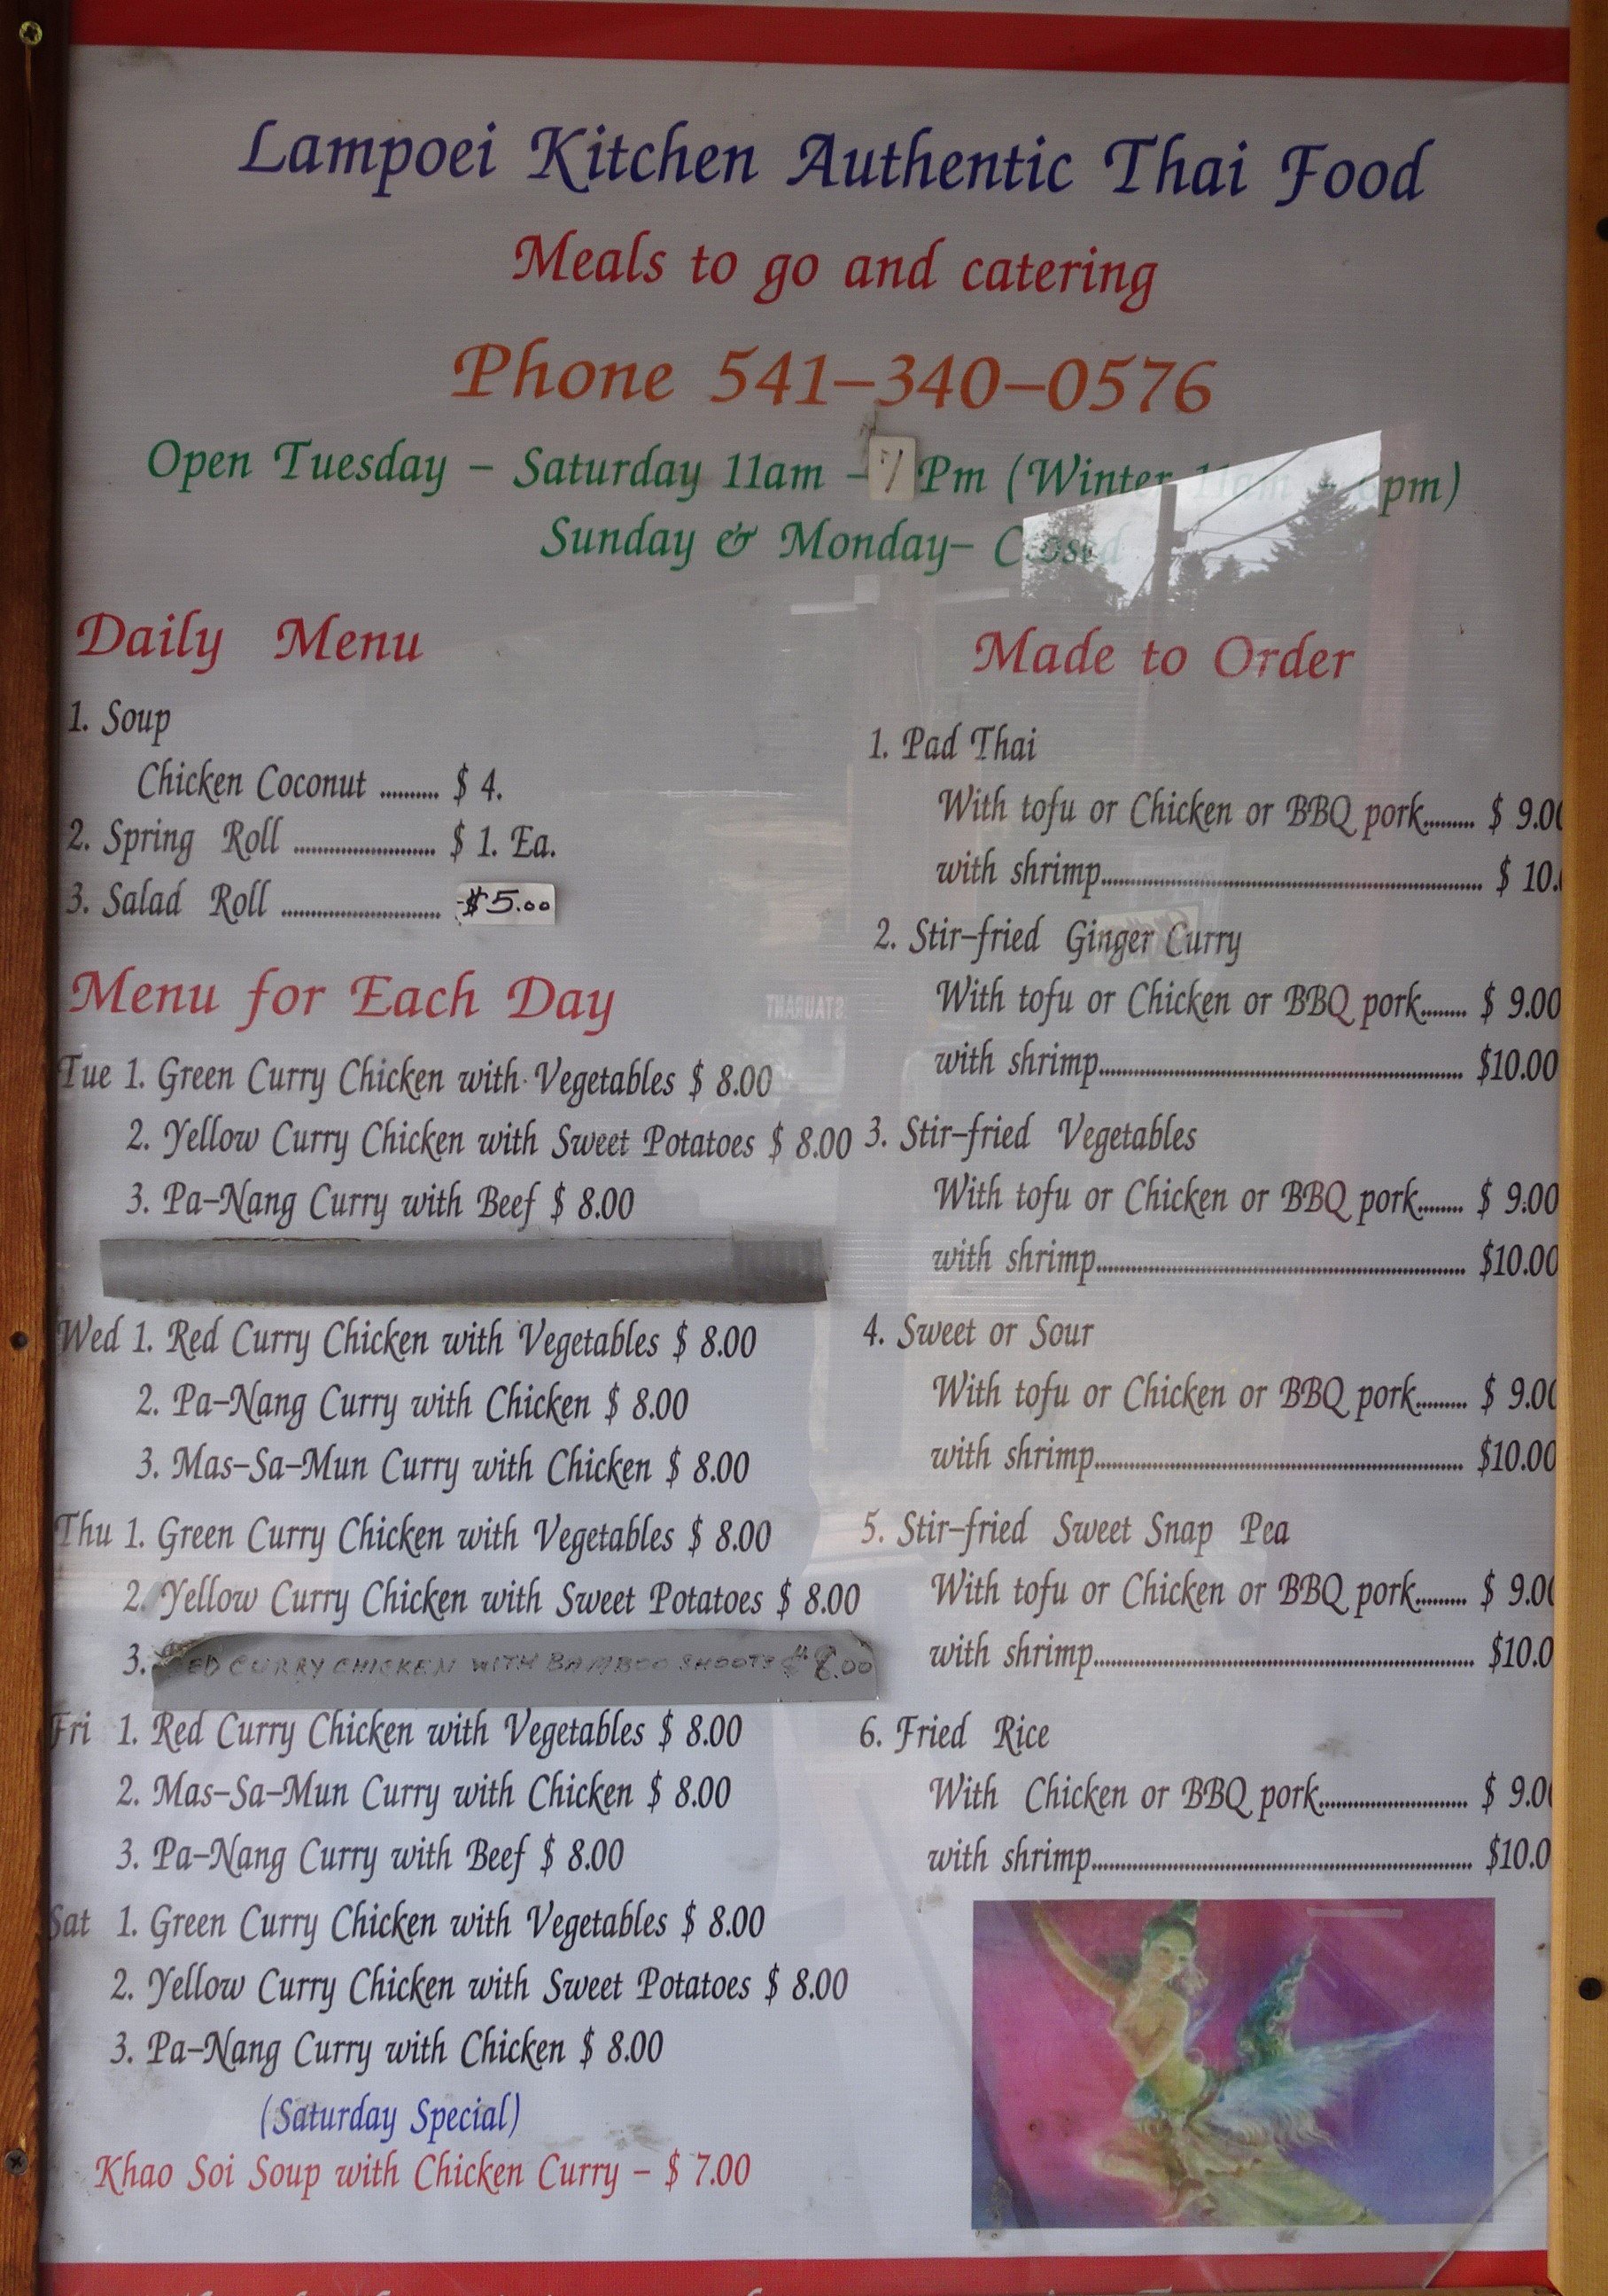 Lampoei Kitchen Authentic Thai Food
Meals to go and catering
Phone 541-340-0576
Open Tuesday - Saturday 11am - 7 Pm (Winter 11am - 6pm)
Sunday & Monday- Closed
Daily Menu
1. Soup
Chicken Coconut .......... $ 4.
2. Spring Roll ........................ $ 1. Ea.
3. Salad Roll ........................... $5.00
Menu for Each Day
Tue 1. Green Curry Chicken with Vegetables $ 8.00
2. Yellow Curry Chicken with Sweet Potatoes $ 8.00
3. Pa-Nang Curry with Beef $ 8.00
Wed 1. Red Curry Chicken with Vegetables $ 8.00
2. Pa-Nang Curry with Chicken $ 8.00
3. Mas-Sa-Mun Curry with Chicken $ 8.00
Thu 1. Green Curry Chicken with Vegetables $ 8.00
2. Yellow Curry Chicken with Sweet Potatoes $ 8.00
3. ED CURRY CHICKEN WITH BAMBOO SHOOTS $8.00
Fri 1. Red Curry Chicken with Vegetables $ 8.00
2. Mas-Sa-Mun Curry with Chicken $ 8.00
3. Pa-Nang Curry with Beef $ 8.00
Sat 1. Green Curry Chicken with Vegetables $ 8.00
2. Yellow Curry Chicken with Sweet Potatoes $ 8.00
3. Pa-Nang Curry with Chicken $ 8.00
(Saturday Special)
Khao Soi Soup with Chicken Curry - $ 7.00
Made to Order
1. Pad Thai
With tofu or Chicken or BBQ pork......... $ 9.00
with shrimp................................................................ $ 10.
2. Stir-fried Ginger Curry
With tofu or Chicken or BBQ pork........ $ 9.00
with shrimp............................................................. $10.00
3. Stir-fried Vegetables
With tofu or Chicken or BBQ pork........ $ 9.00
with shrimp............................................................. $10.00
4. Sweet or Sour
With tofu or Chicken or BBQ pork......... $ 9.00
with shrimp............................................................. $10.00
5. Stir-fried Sweet Snap Pea
With tofu or Chicken or BBQ pork......... $ 9.00
with shrimp............................................................... $10.0
6. Fried Rice
With Chicken or BBQ pork......................... $ 9.00
with shrimp............................................................... $10.0